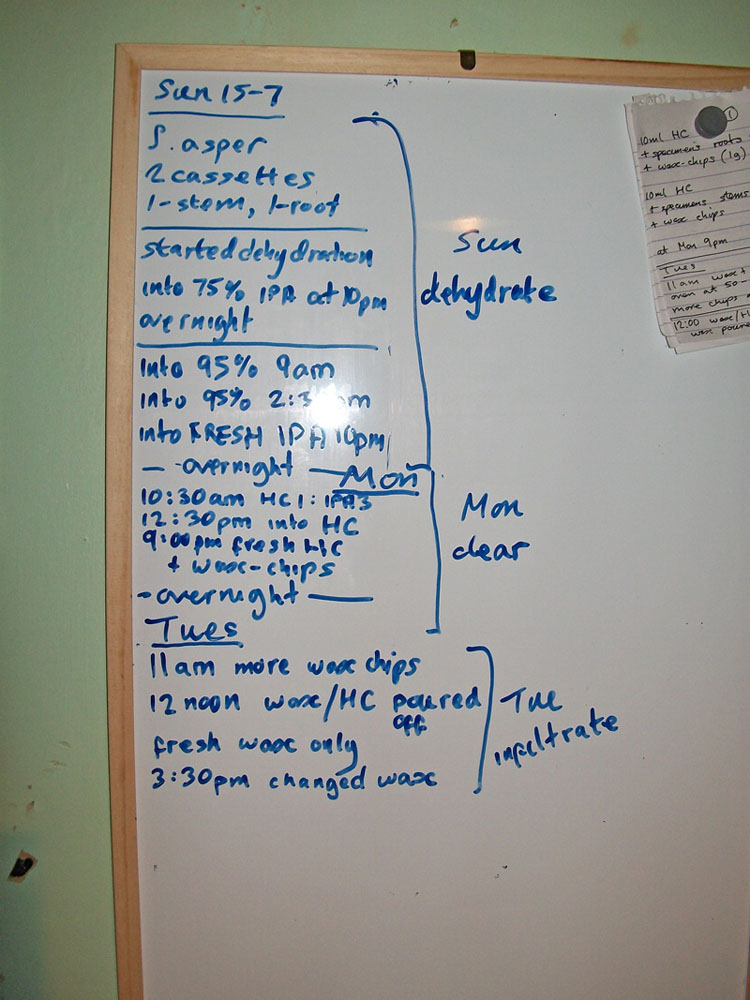 Sun 15-7
S. asper
2 cassettes
1-stem, 1-root
started dehydration
into 75% IPA at 10pm
overnight
into 95% 9am
into 95% 2:3 pm
into FRESH IPA 10pm
- overnight -
Sun
dehydrate
Mon
10:30am HC 1: IPA3
12:30pm into HC
9:00pm fresh HC
+ wax-chips
- overnight -
Mon
clear
Tues
11am more wax chips
12 noon wax/HC poured
off
fresh wax only
3:30pm changed wax
Tue
infiltrate
1
10ml HC
+ specimens roots
+ wax-chips (1g)
10ml HC
+ specimens stems
+ wax chips
at Mon 9pm
Tues
11am wax +
oven at 50-
more chips
12:00 wax/H
wax poure